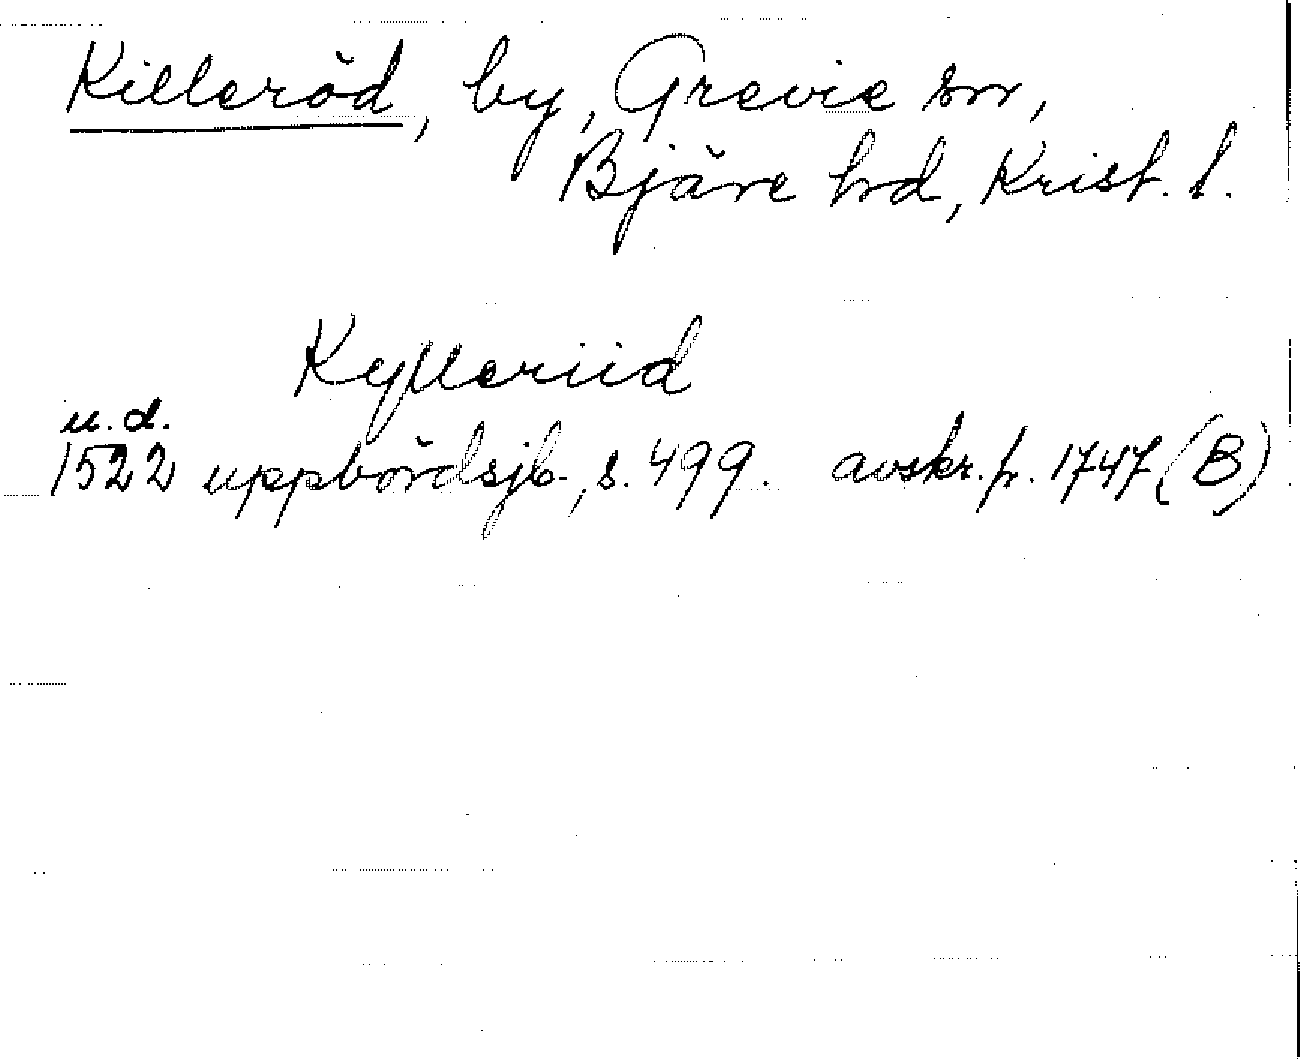 Killeröd, by, Grevie sn,
Bjäre hd, Krist. l.
Kylleriid
u.d.
1522 uppbördsjb., s. 499. avskr. fr. 1747 (B)